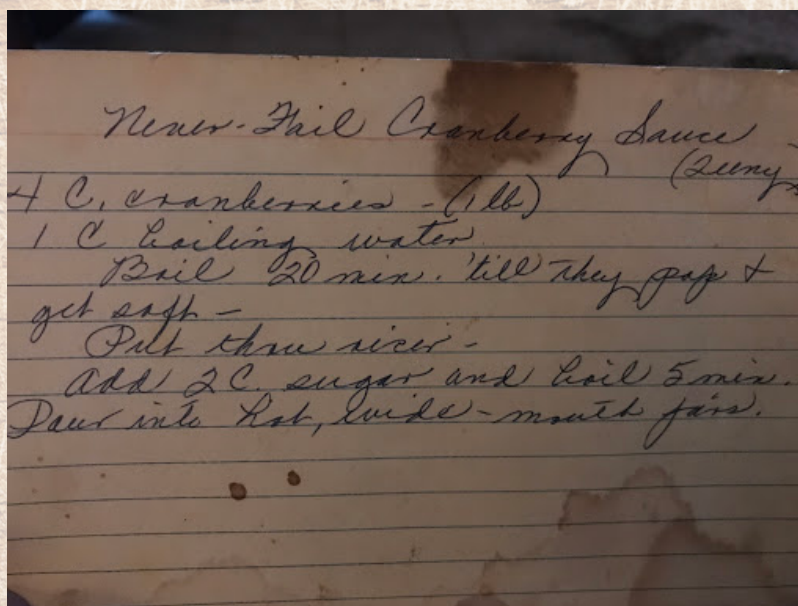 Never-Fail Cranberry Sauce -
4 C. cranberries - (1 lb)
1 C boiling water
Boil 20 min. 'till they pop +
get soft -
Put thru ricer -
add 2 C. sugar and boil 5 min.
Pour into hot, wide-mouth jars.